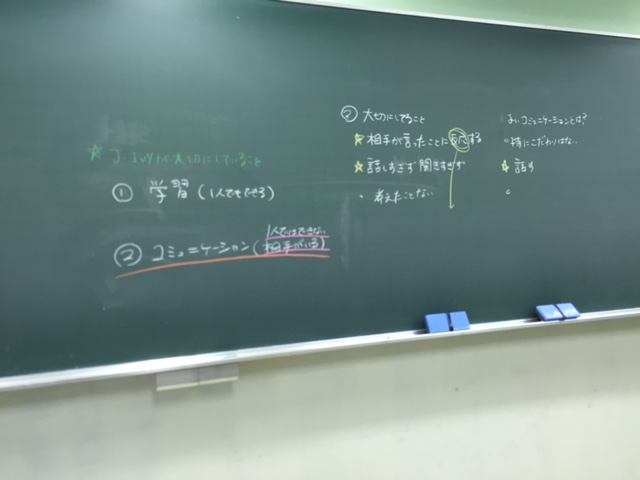 ☆ J-Ivyが大切にしていること
① 学習(1人でもできる)
② コミュニケーション(1人ではできない
相手がいる)
② 大切にしてること
☆相手が言ったことに反応する
☆話しすぎず 聞きすぎず
・考えたことない
よいコミュニケーションとは?
・特にこだわりはない
☆ 話す